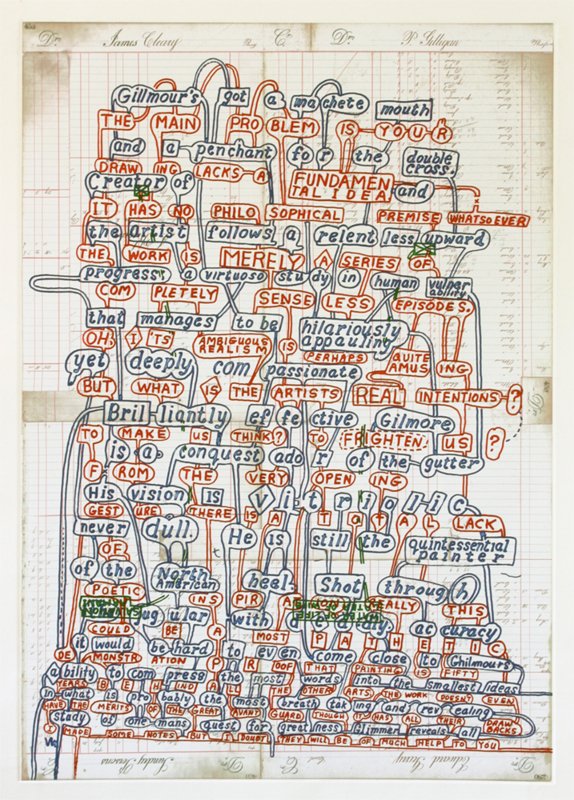 Dr James Cleary C Dr P. Gilligan
Gilmour's got a machete mouth
THE MAIN PROBLEM IS YOUR
and a penchant for the double cross.
DRAWING LACKS A FUNDAMENTAL IDEA
Creator of and
IT HAS NO PHILOSOPHICAL PREMISE WHATSOEVER
the artist follows a relentless upward
THE WORK IS MERELY A SERIES OF
progress: a virtuoso study in human vulnerability
COMPLETELY SENSELESS EPISODES.
that manages to be hilariously appauling
OH, IT'S AMBIGUOUS REALISM IS PERHAPS QUITE AMUSING
yet deeply compassionate
BUT WHAT IS THE ARTISTS REAL INTENTIONS?
Brilliantly effective Gilmore
TO MAKE US THINK? TO FRIGHTEN US?
is a conquestador of the gutter
FROM THE VERY OPENING
His vision IS Vitriolic
GESTURE THERE IS A TOTAL LACK
never dull. He is still the quintessential painter
OF
of the North American heel Shot through
POETIC INSPIR REALLY THIS
jugular with at curacy
COULD BE A MOST PATHETIC
it would be hard to even come close to Ghilmour's
DEMONSTRATION PROOF THAT PAINTING IS FIFTY
ability to compress the most words into the smallest ideas
YEARS BEHIND ALL THE OTHER ARTS. THE WORK DOESN'T EVEN
in what is probably the most breath taking and revealing
HAVE THE MERITS OF THE GREAT AVANT GUARD THOUGH IT HAS ALL THEIR DRAWBACKS
study of one mans quest for greatness. Glimmer reveals all
I MADE SOME NOTES BUT I DOUBT THEY WILL BE OF MUCH HELP TO YOU